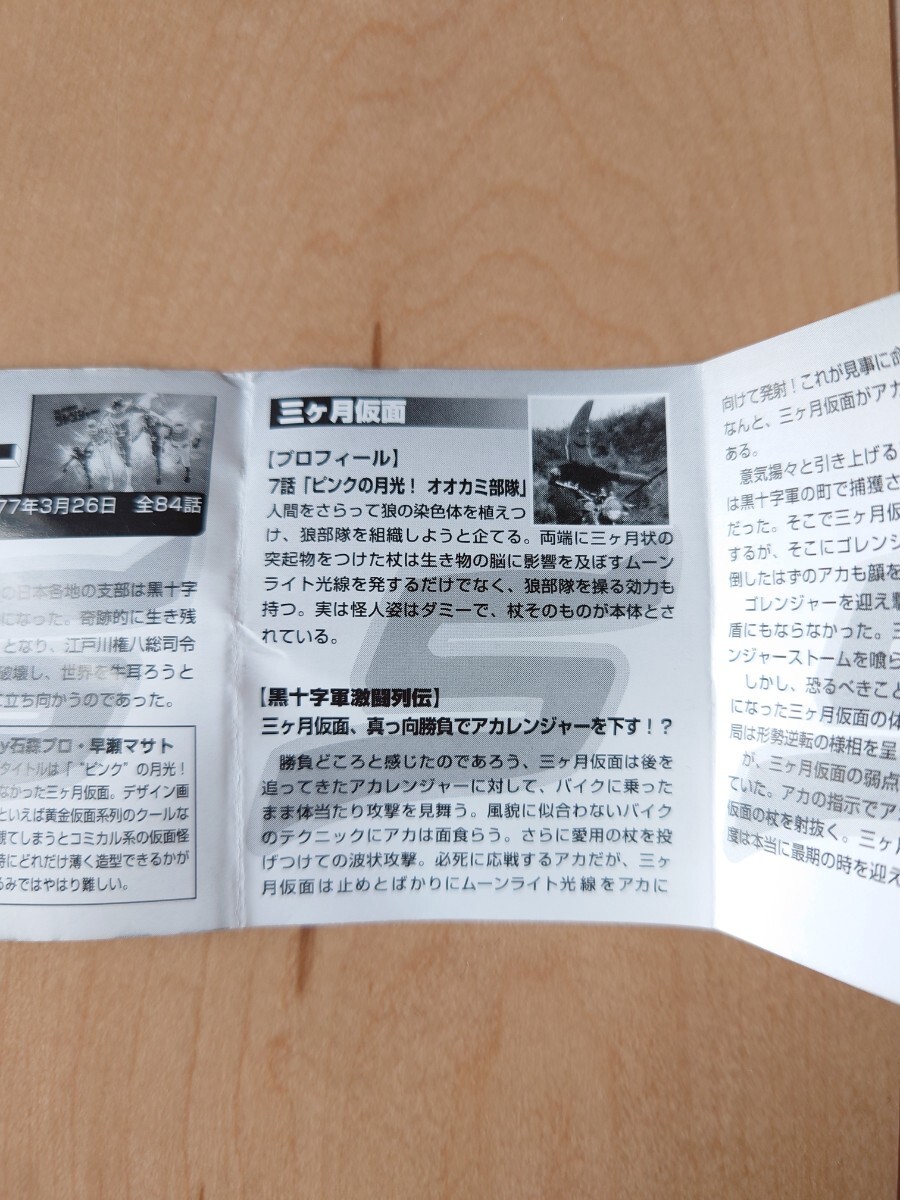 77年3月26日 全84話
の日本各地の支部は黒十字
になった。奇跡的に生き残
となり、江戸川権八総司令
破壊し、世界を牛耳ろうと
に立ち向かうのであった。
y石森プロ・早瀬マサト
タイトルは「“ピンク”の月光!
なかった三ヶ月仮面。デザイン画
といえば黄金仮面系列のクールな
戯てしまうとコミカル系の仮面怪
時にどれだけ薄く造型できるかが
るみではやはり難しい。
三ヶ月仮面
【プロフィール】
7話「ピンクの月光! オオカミ部隊」
人間をさらって狼の染色体を植えつ
け、狼部隊を組織しようと企てる。両端に三ヶ月状の
突起物をつけた杖は生き物の脳に影響を及ぼすムーン
ライト光線を発するだけでなく、狼部隊を操る効力も
持つ。実は怪人姿はダミーで、杖そのものが本体とさ
れている。
【黒十字軍激闘列伝】
三ヶ月仮面、真っ向勝負でアカレンジャーを下す!?
勝負どころと感じたのであろう、三ヶ月仮面は後を
追ってきたアカレンジャーに対して、バイクに乗った
まま体当たり攻撃を見舞う。風貌に似合わないバイク
のテクニックにアカは面食らう。さらに愛用の杖を投
げつけての波状攻撃。必死に応戦するアカだが、三ヶ
月仮面は止めとばかりにムーンライト光線をアカに
向けて発射!これが見事に命
なんと、三ヶ月仮面がアカ
ある。
意気揚々と引き上げる
は黒十字軍の町で捕獲さ
だった。そこで三ヶ月仮
するが、そこにゴレンジ
倒したはずのアカも顔を
ゴレンジャーを迎え撃
盾にもならなかった。三
ンジャーストームを喰ら
しかし、恐るべきこと
になった三ヶ月仮面の体
局は形勢逆転の様相を呈
が、三ヶ月仮面の弱点
ていた。アカの指示でア
仮面の杖を射抜く。三ヶ月
度は本当に最期の時を迎え